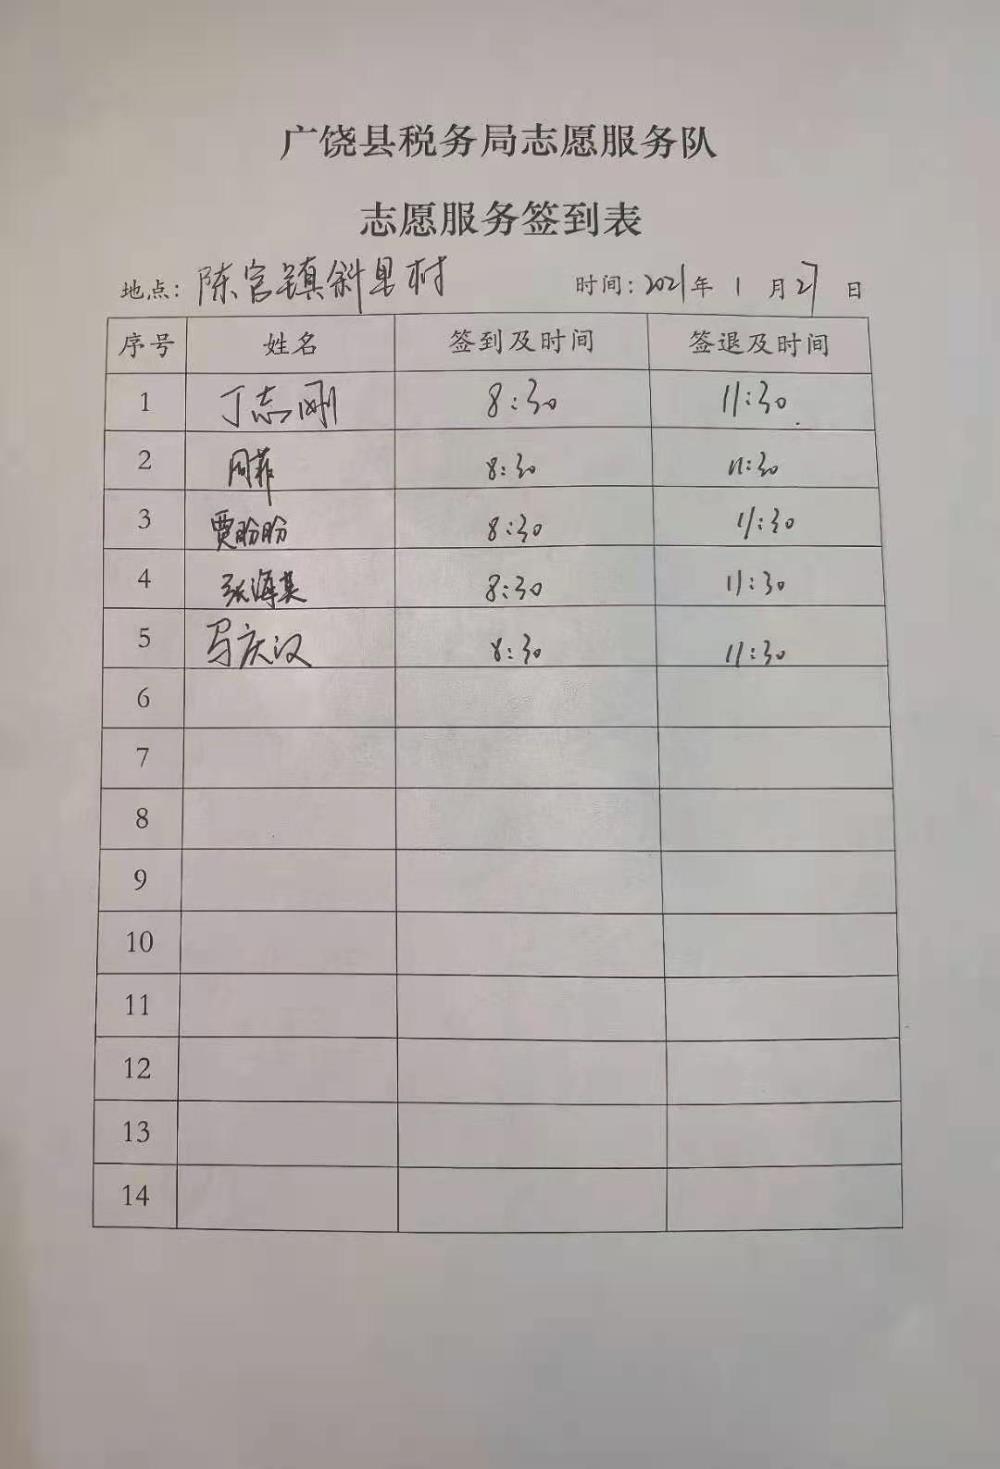 广饶县税务局志愿服务队
志愿服务签到表
地点：陈官镇斜里村 时间：2021年 1 月 27 日
序号 姓名 签到及时间 签退及时间
1 丁志刚 8:30 11:30
2 周菲 8:30 11:30
3 贾盼盼 8:30 11:30
4 张海英 8:30 11:30
5 马庆汉 8:30 11:30
6
7
8
9
10
11
12
13
14